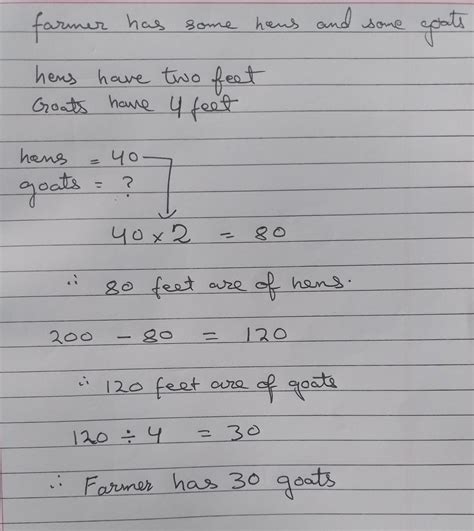 farmer has some hens and some goats
hens have two feet
Goats have 4 feet
hens = 40
goats = ?
40 × 2 = 80
∴ 80 feet are of hens.
200 - 80 = 120
∴ 120 feet are of goats
120 ÷ 4 = 30
∴ Farmer has 30 goats